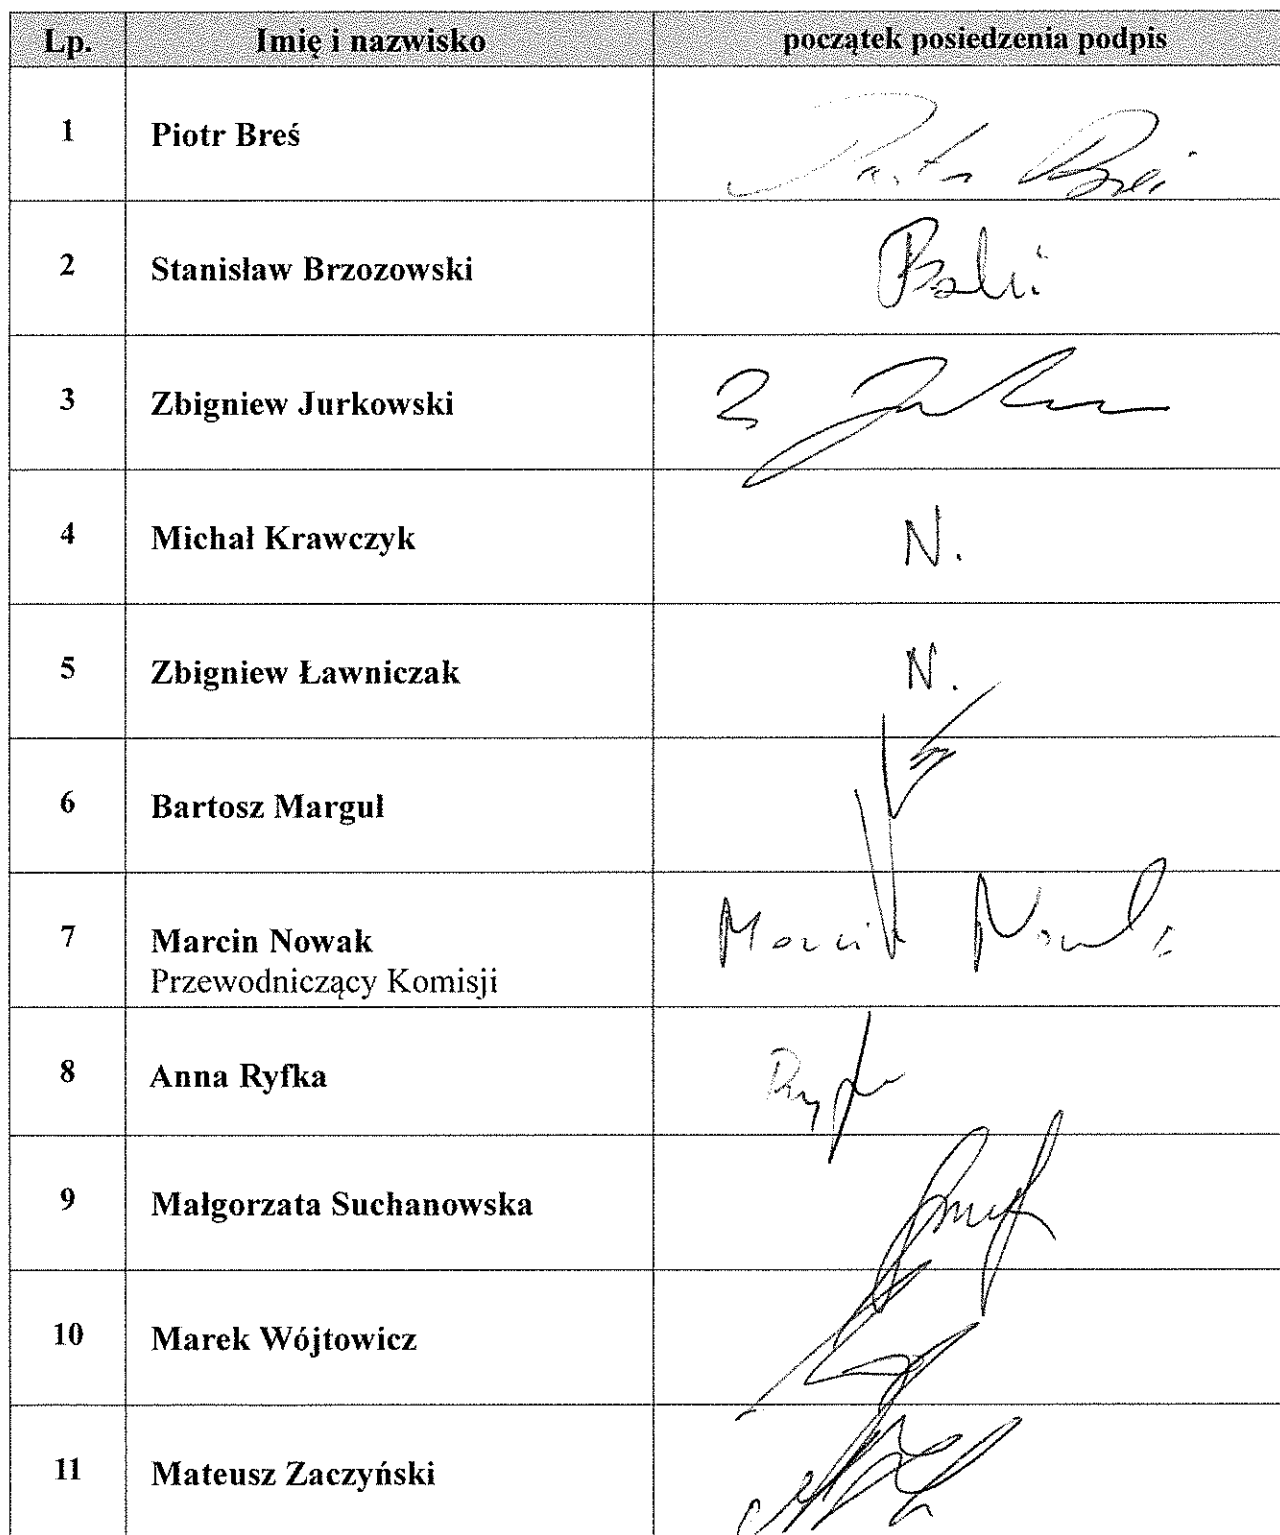 Lp. Imię i nazwisko początek posiedzenia podpis
1 Piotr Breś
2 Stanisław Brzozowski
3 Zbigniew Jurkowski
4 Michał Krawczyk N.
5 Zbigniew Ławniczak N.
6 Bartosz Margul
7 Marcin Nowak Marcin Nowak
Przewodniczący Komisji
8 Anna Ryfka
9 Małgorzata Suchanowska
10 Marek Wójtowicz
11 Mateusz Zaczyński